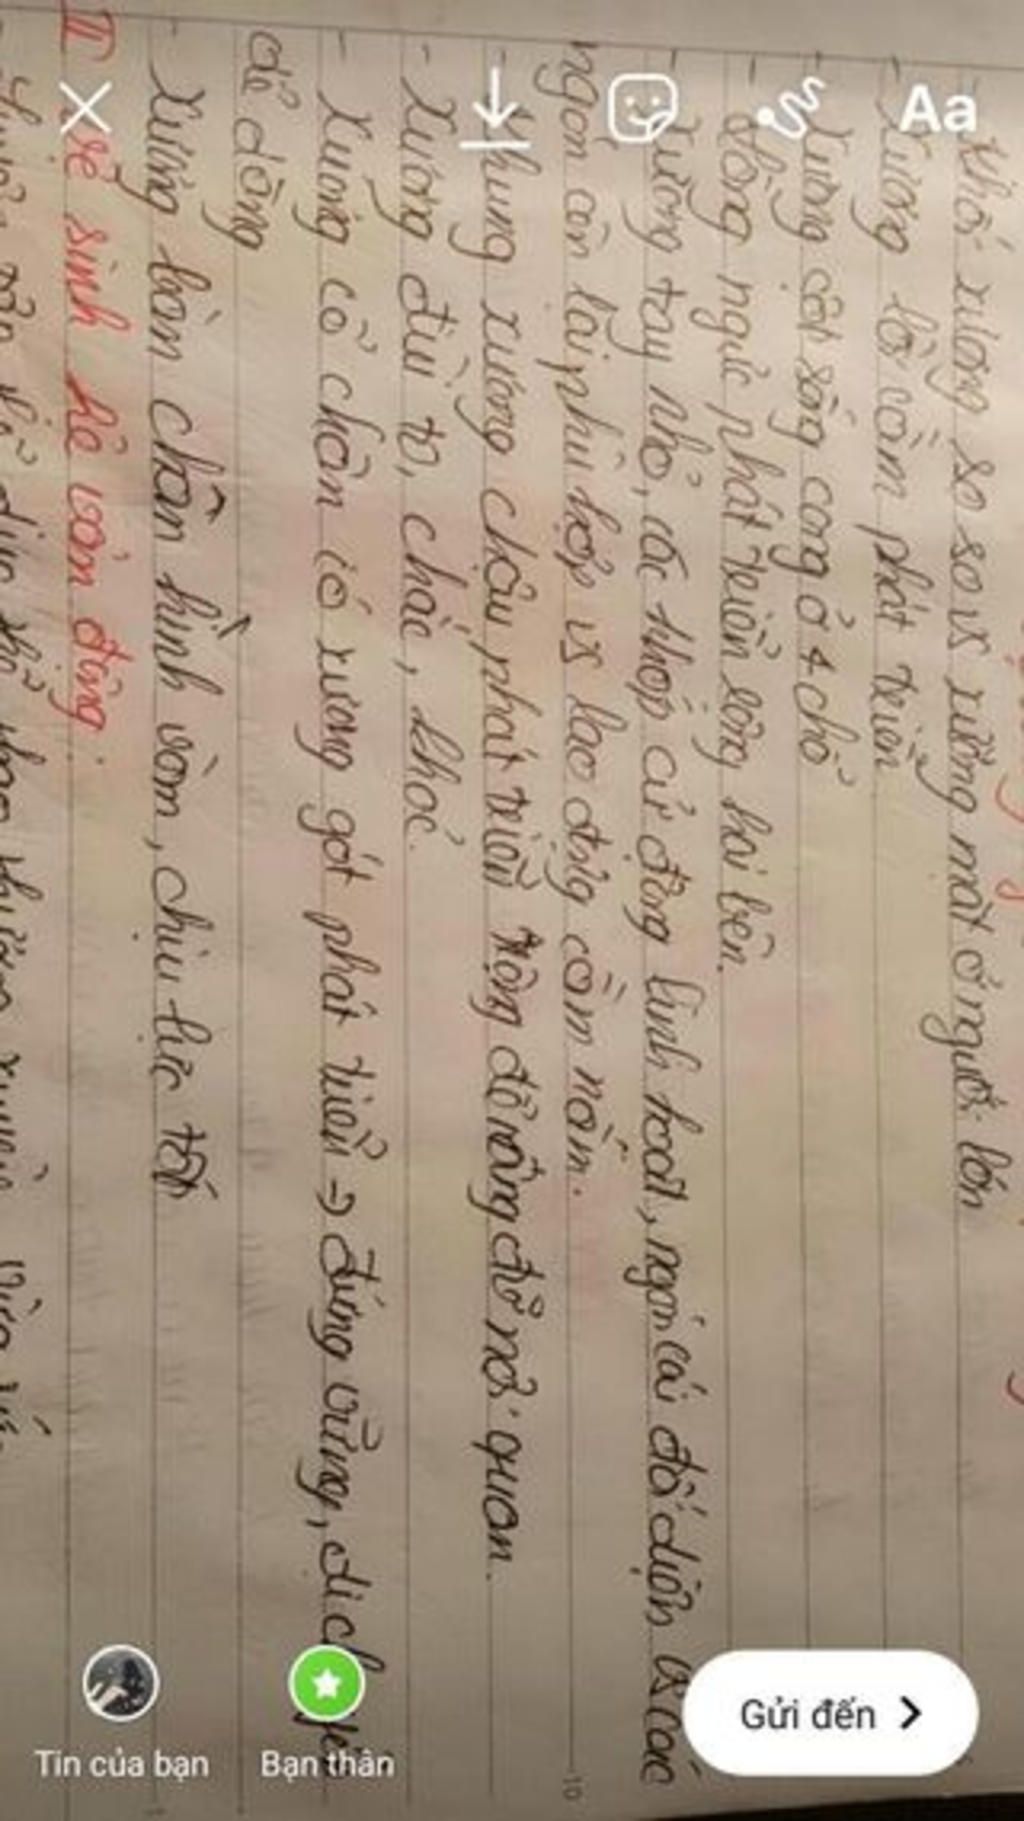 Aa
- Khối xương sọ so vs xương mặt ở người lớn
- Xương lồi cằm phát triển
- Xương cột sống cong ở 4 chỗ
- Lồng ngực phát triển rộng hai bên.
- Xương tay nhỏ, các khớp cử động linh hoạt, ngón cái đối diện vs các
ngón còn lại phù hợp vs lao động cầm nắm.
- Khung xương chậu phát triển rộng đỡ nâng đỡ nội quan.
- Xương đùi to, chắc, khoẻ.
- Xương cổ chân có xương gót phát triển → đứng vững, di chuyển
dễ dàng
- Xương bàn chân hình vòm, chịu lực tốt
II Vệ sinh hệ vận động:
10
Tin của bạn
Bạn thân
Gửi đến